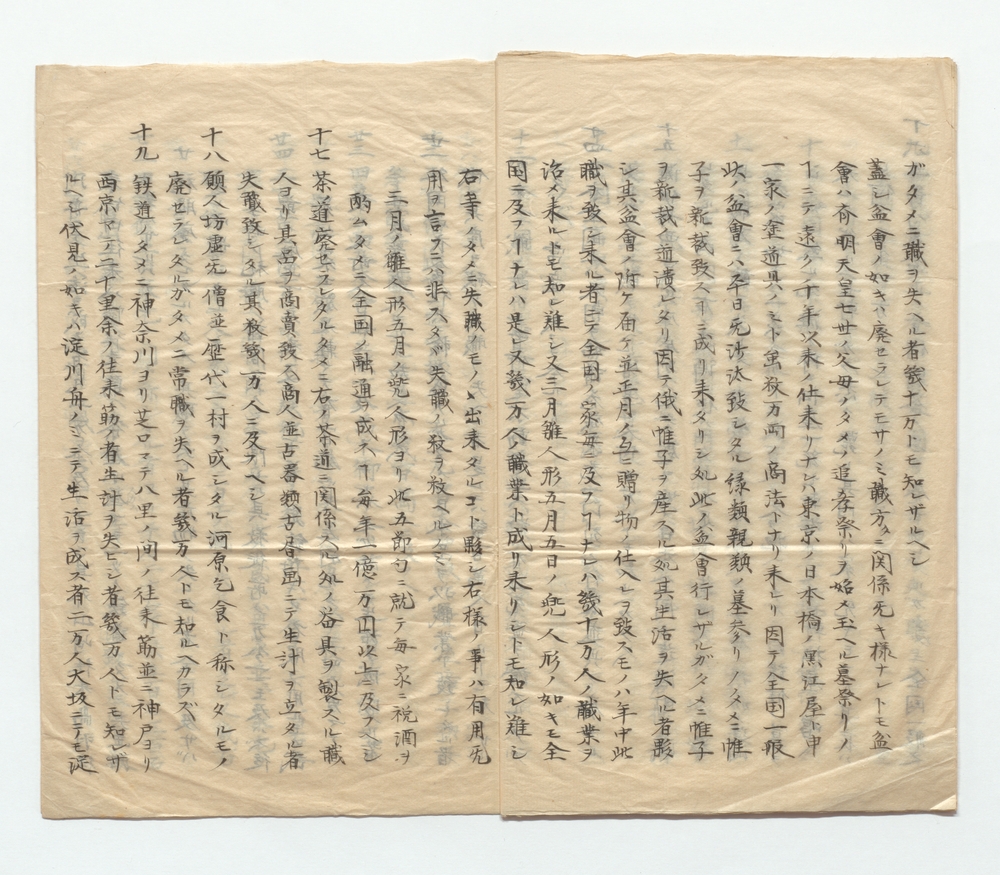 ガタメニ職ヲ失ヘル者幾十万トモ知レザルヘシ
蓋シ盆會ノ如キハ廃セラレテモサノミ職方タニ関係旡キ様ナレトモ盆
會ハ斉明天皇七世ノ父母ノタメノ追孝祭リヲ始メ玉ヘル墓祭リノ
ヿニテ遠ク千年以来ノ仕来リナレハ東京ノ日本橋ノ黒江屋ト申
一家ノ塗道具ノミト虽数万両ノ商法トナリ来レリ因テ全国一般
此ノ盆會ニハ平日旡沙汰致シタル縁類親類ノ墓参リノタメニ帷
子ヲ新裁致スヿニ成リ来タリシ処此ノ盆會行レザルガタメニ帷子
ヲ新裁ノ道潰レタリ因テ俄ニ帷子ヲ産スル処其生活ヲ失ヘル者夥
シ其盆會ノ附ケ届ケ並正月ノ互ニ贈リ物ノ仕入レヲ致スモノハ年中此
職ヲ致シ来ル者ニテ全国ノ家毎ニ及フヿナレハ幾十万人ノ職業ヲ
治メ来ルトモ知レ難シ又三月雛人形五月五日ノ兜人形ノ如キモ全
国ニ及フヿナレハ是レ又幾万人ノ職業ト成リ来リシトモ知レ難シ
右等ノタメニ失職ノモノヽ出来タルコト夥シ右様ノ事ハ有用旡
用ヲ言フニハ非スタヾ失職ノ数ヲ数ヘルノミ
三月ノ雛人形五月ノ兜人形ヨリ此五節句ニ就テ毎家ニ祝酒ヲ
酌ムタメニ全国ノ融通ヲ成スヿ毎年一億万円以上ニ及フヘシ
十七 茶ノ道廃セラレタルタメニ右ノ茶道ニ関係スル処ノ器具ヲ製スル職
人ヨリ其品ヲ商賣致ス商人並古器類古書画ニテ生計ヲ立タル者
失職致シタル其数幾万人ニ及フヘシ
十八 願人坊虚旡僧並ニ歴代一村ヲ成シタル河原乞食ト称シタルモノ
廃セラレタルガタメニ常職ヲ失ヘル者幾万人トモ知ルヘカラズ
十九 鉄道ノタメニ神奈川ヨリ芝口マテ八里ノ間ノ往来筋並ニ神戸ヨリ
西京マテ二十里余ノ往来筋ノ者生計ヲ失ヒシ者幾万人トモ知レザ
ルヘシ伏見ノ如キハ淀川舟ノミニテ生活ヲ成ス者二万人大坂ニテモ淀